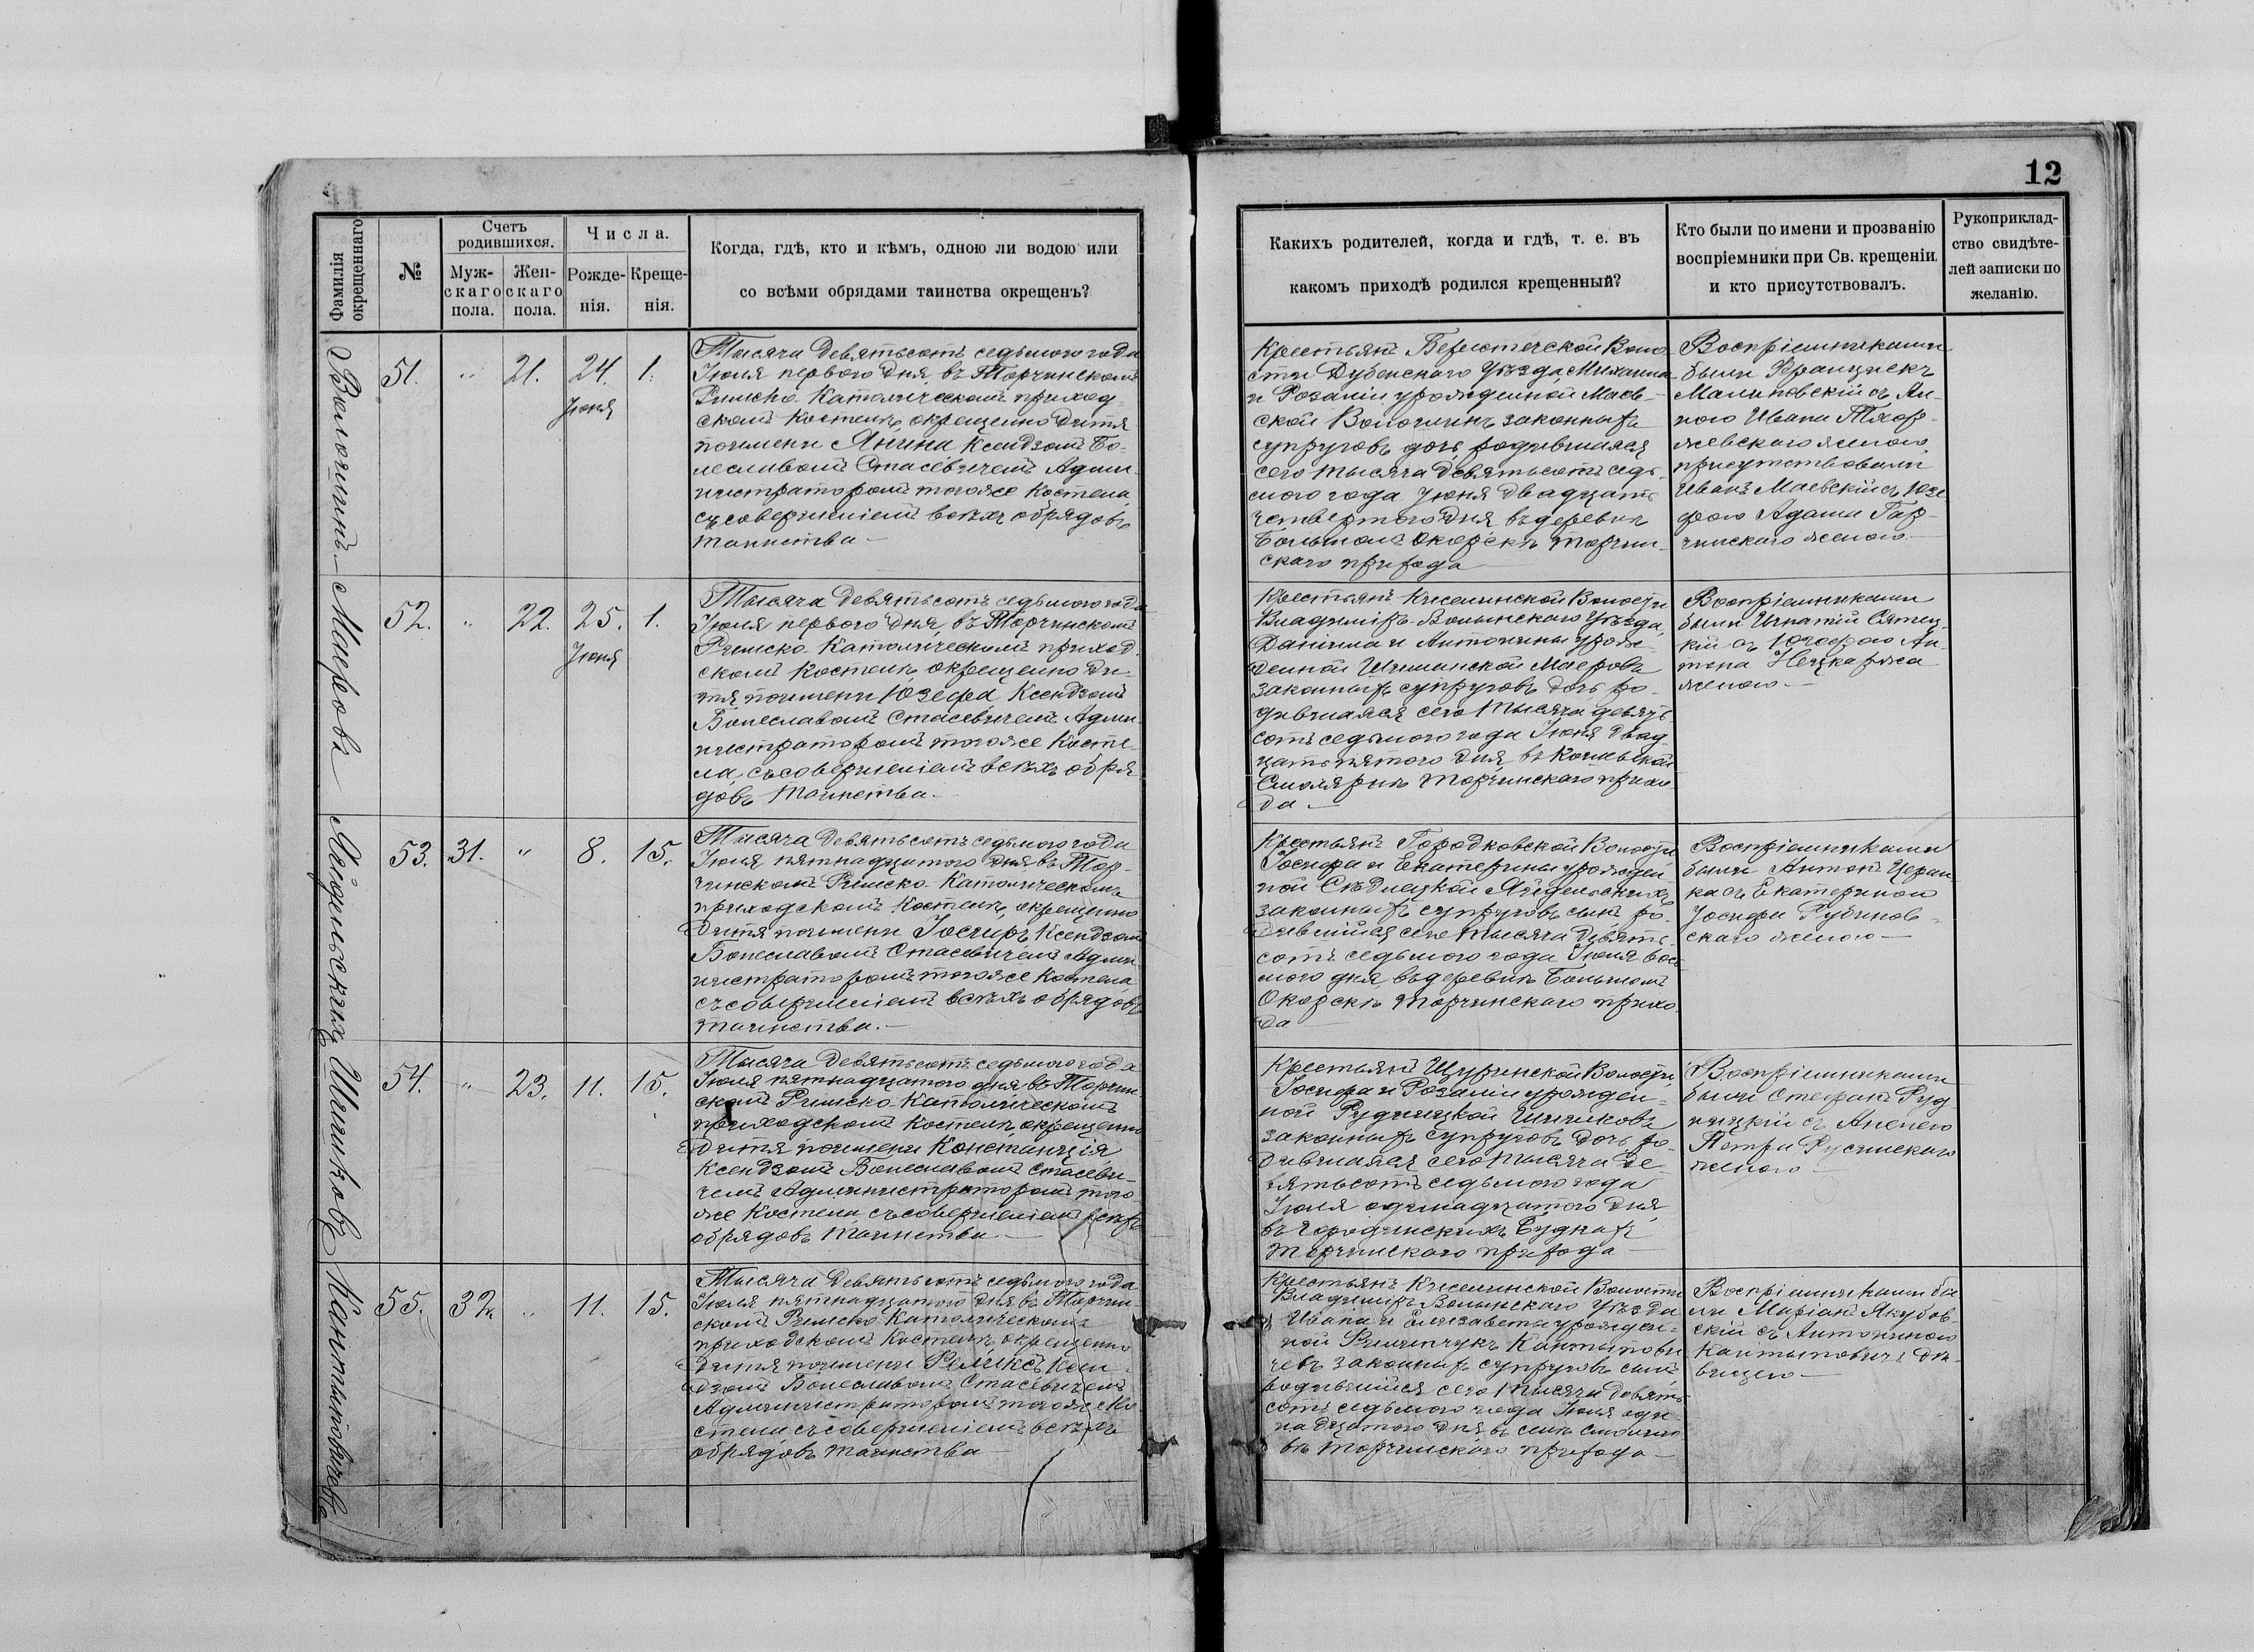 12
Фамилія
окрещеннаго
№
Счетъ
родившихся.
Муж-
скаго
пола.
Жен-
скаго
пола.
Числа.
Рожде-
нія.
Креще-
нія.
Когда, гдѣ, кто и кѣмъ, одною ли водою или
со всѣми обрядами таинства окрещенъ?
Какихъ родителей, когда и гдѣ, т. е. въ
какомъ приходѣ родился крещенный?
Кто были по имени и прозванію
воспріемники при Св. крещеніи
и кто присутствовалъ.
Рукоприклад-
ство свидѣте-
лей записки по
желанію.
51. " 21. 24. 1.
Іюня
Тысяча девятьсотъ седьмого года
Іюля перваго дня, въ Торчинскомъ
Римско-Католическомъ приход-
скомъ Костелѣ, окрещено дитя
по имени Янина Ксендзомъ Бо-
леславомъ Стасевичемъ Адми-
нистраторомъ того же Костела,
съ совершеніемъ всѣхъ обрядовъ
таинства —
Крестьянъ Берестечской Воло-
сти Дубенскаго Уѣзда, Михаила
и Розаліи урожденной Маев-
ской законныхъ
супруговъ дочь родившаяся
сего тысяча девятьсотъ седь-
мого года Іюня двадцать
четвертаго дня въ деревнѣ
Большомъ Окорскѣ Торчин-
скаго прихода
Воспріемниками
были Францискъ
Малиновскій съ Ан-
ною Ивана
женою,
присутствовали
Иванъ Маевскій съ Юзе-
фою Адама Гар-
чинскаго женою. —
52. " 22. 25. 1.
Іюня
Маеровъ
Тысяча девятьсотъ седьмого года
Іюля перваго дня, въ Торчинскомъ
Римско-Католическомъ приход-
скомъ Костелѣ, окрещено ди-
тя по имени Юзефа Ксендзомъ
Болеславомъ Стасевичемъ Адми-
нистраторомъ того же Косте-
ла, съ совершеніемъ всѣхъ обря
довъ таинства. —
Крестьянъ Киселинской Волости
Владиміръ-Волынскаго Уѣзда,
Даніила и Антонины урож-
денной Маеровъ
законныхъ супруговъ дочь ро-
дившаяся сего тысяча девять
сотъ седьмого года Іюня двад
цать пятаго дня, въ
Смолярнѣ Торчинскаго прихо
да —
Воспріемниками
были Игнатій
съ Юзефою Ан-
тона
женою —
53. 31. " 8. 15.
Яйдельскихъ
Тысяча девятьсотъ седьмого года
Іюля пятнадцатаго дня въ Тор-
чинскомъ Римско-Католическомъ
приходскомъ Костелѣ, окрещено
дитя по имени Іосифъ Ксендзомъ
Болеславомъ Стасевичемъ Адми-
нистраторомъ того же Костела
съ совершеніемъ всѣхъ обрядовъ
таинства. —
Крестьянъ Городковской Волости
Іосифа и Екатерины урожден
ной Сѣдлецкой Яйдельскихъ
законныхъ супруговъ сынъ ро-
дившійся сего тысяча девять-
сотъ седьмого года Іюля вось
мого дня въ деревнѣ Большомъ
Окорскѣ Торчинскаго прихо-
да —
Воспріемниками
были Антонъ
съ Екатериною
Іосифа Рубинов-
скаго женою —
54. " 23. 11. 15.
Шпиковъ
Тысяча девятьсотъ седьмого года
Іюля пятнадцатаго дня въ Торчин
скомъ Римско-Католическомъ
приходскомъ Костелѣ, окрещено
дитя по имени Констанція
Ксендзомъ Болеславомъ Стасеви-
чемъ Администраторомъ того-
же Костела, съ совершеніемъ всѣхъ
обрядовъ таинства —
Крестьянъ Щуринской Волости
Іосифа и Розаліи урожден-
ной Рудницкой Шпиковъ
законныхъ супруговъ дочь ро-
дившаяся сего тысяча де
вятьсотъ седьмого года
Іюля одинадцатаго дня,
въ Городинскихъ Будкахъ
Торчинскаго прихода —
Воспріемниками
были Стефанъ Руд
ницкій съ Анелею
Петра Русинскаго
женою —
55. 32. " 11. 15.
Кантыповичевъ
Тысяча девятьсотъ седьмого года
Іюля пятнадцатаго дня въ Торчин-
скомъ Римско-Католическомъ
приходскомъ Костелѣ, окрещено
дитя по имени Феликсъ Ксен
дзомъ Болеславомъ Стасевичемъ
Администраторомъ того же Ко
стела, съ совершеніемъ всѣхъ
обрядовъ таинства —
Крестьянъ Киселинской Волости
Владиміръ-Волынскаго Уѣзда
Ивана и Елизаветы урожден-
ной Филипчукъ Кантыпови
чевъ законныхъ супруговъ сынъ
родившійся сего тысяча девять
сотъ седьмого года Іюля оди-
надцатаго дня, въ селѣ
Торчинскаго прихода —
Воспріемниками бы
ли Маріанъ Якубов-
скій съ Антониною
Кантыповичъ дѣ-
вицею —